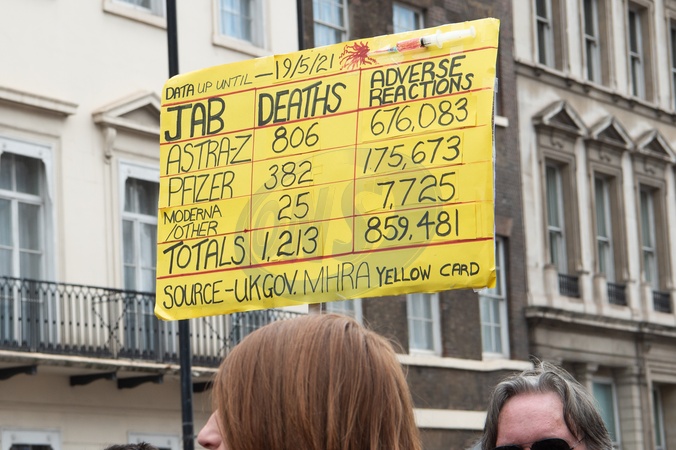 DATA UP UNTIL - 19/5/21
JAB DEATHS ADVERSE REACTIONS
ASTRAZ 806 676,083
PFIZER 382 175,673
MODERNA /OTHER 25 7,725
TOTALS 1,213 859,481
SOURCE - UK GOV. MHRA YELLOW CARD